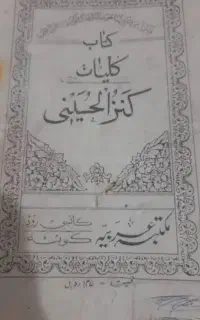 کتاب
کلیات
کنز الحسینی
مکتبہ عربیہ
کانسی روڈ
کوئٹہ